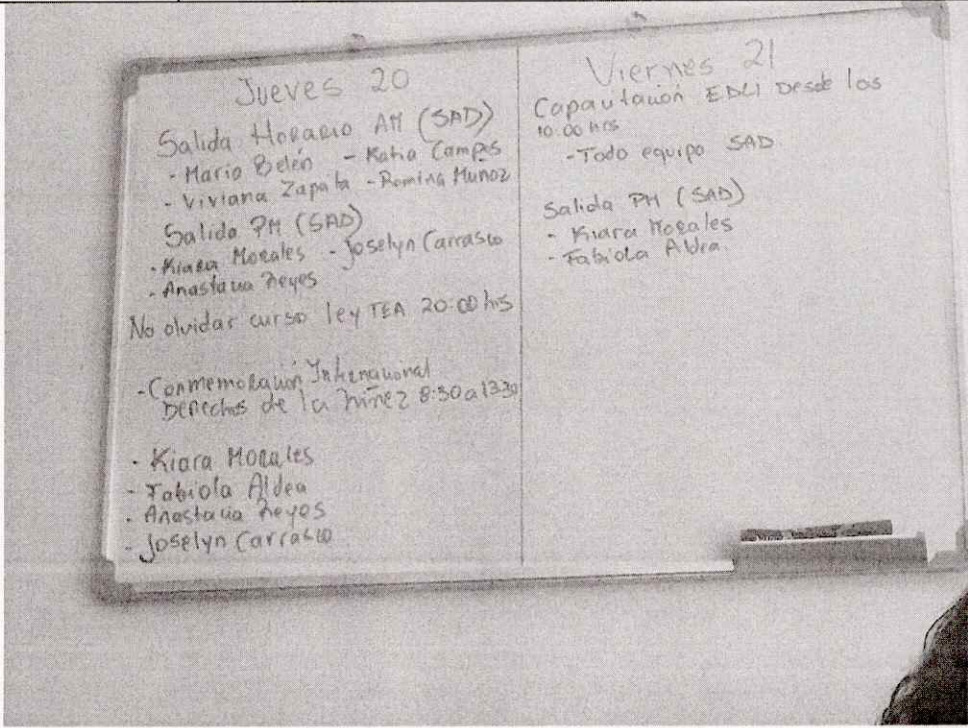 Jueves 20
Salida Horario AM (SAD)
- Mario Belén - Katia Campos
- Viviana Zapata - Romina Munoz
Salida PM (SAD)
- Kiara Morales - Joselyn Carrasco
- Anastacia Reyes
No olvidar curso ley TEA 20:00 hrs
- Conmemoración Internacional
Derechos de la niñez 8:30 a 13:30
- Kiara Morales
- Fabiola Aldea
- Anastacia Reyes
- Joselyn Carrasco
Viernes 21
Capacitación EDLI Desde las
10:00 hrs
- Todo equipo SAD
Salida PM (SAD)
- Kiara Morales
- Fabiola Aldea.